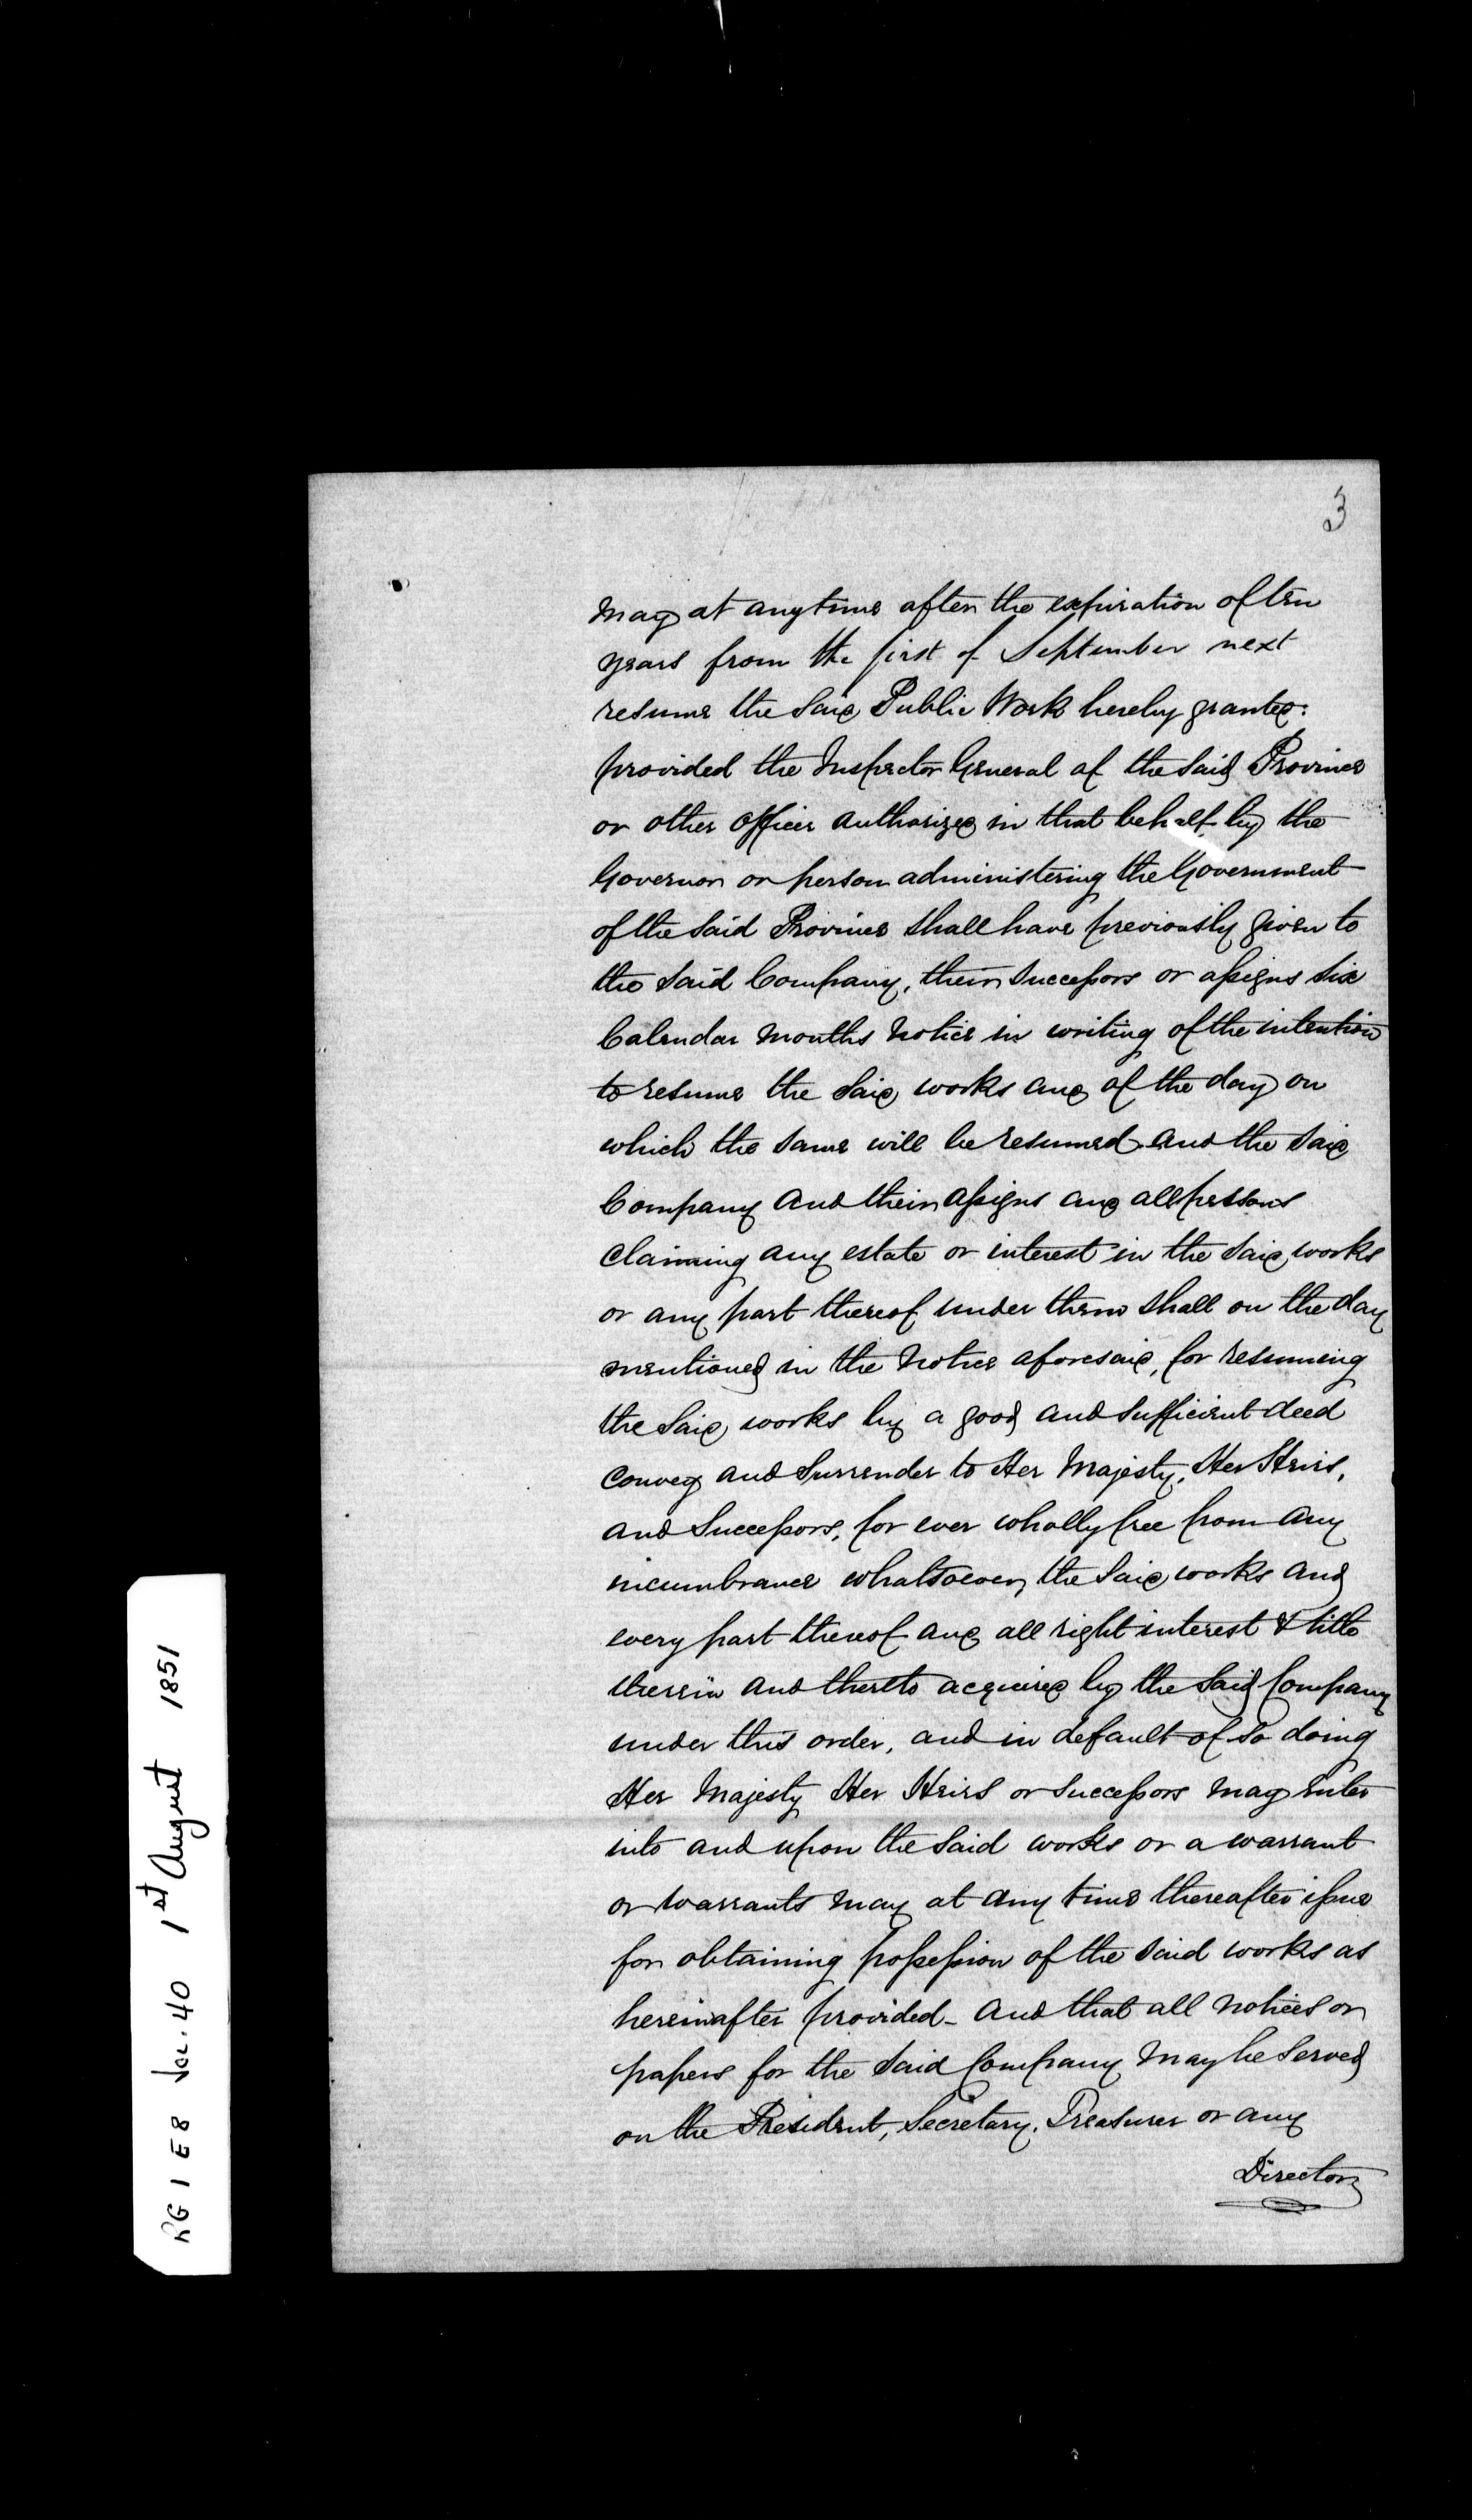 3
may at any time after the expiration of ten
years from the first of September next
resume the said Public Work hereby granted:
provided the Inspector General of the said Province
or other officer authorized in that behalf by the
Governor or person administering the Government
of the said Province shall have previously given to
the said Company, their successors or assigns six
Calendar months notice in writing of the intention
to resume the said works and of the day on
which the same will be resumed and the said
Company and their assigns and all persons
claiming any estate or interest in the said works
or any part thereof under them shall on the day
mentioned in the notice aforesaid, for resuming
the said works by a good and sufficient deed
convey and surrender to Her Majesty, Her Heirs,
and Successors, for ever wholly free from any
incumbrance whatsoever, the said works and
every part thereof and all right interest & title
therein and thereto acquired by the said Company
under this order, and in default of so doing
Her Majesty Her Heirs or Successors may enter
into and upon the said works or a warrant
or warrants may at any time thereafter issue
for obtaining possession of the said works as
hereinafter provided - and that all notices or
papers for the said Company may be served
on the President, Secretary, Treasurer or any
Director
RG 1 E 8 Vol. 40 1st August 1851